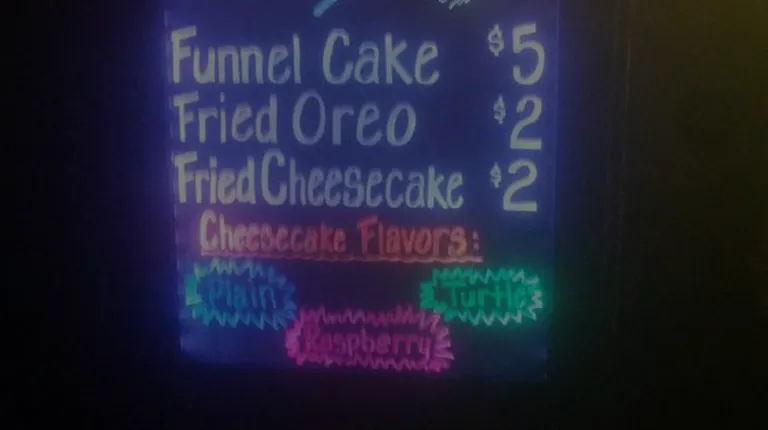 Funnel Cake $5
Fried Oreo $2
Fried Cheesecake $2
Cheesecake Flavors:
Plain
Turtle
Raspberry